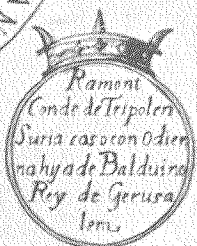 Ramont
Conde de Tripolen
Suria casocon Odier
nahya de Balduino
Rey de Gerusa
lem